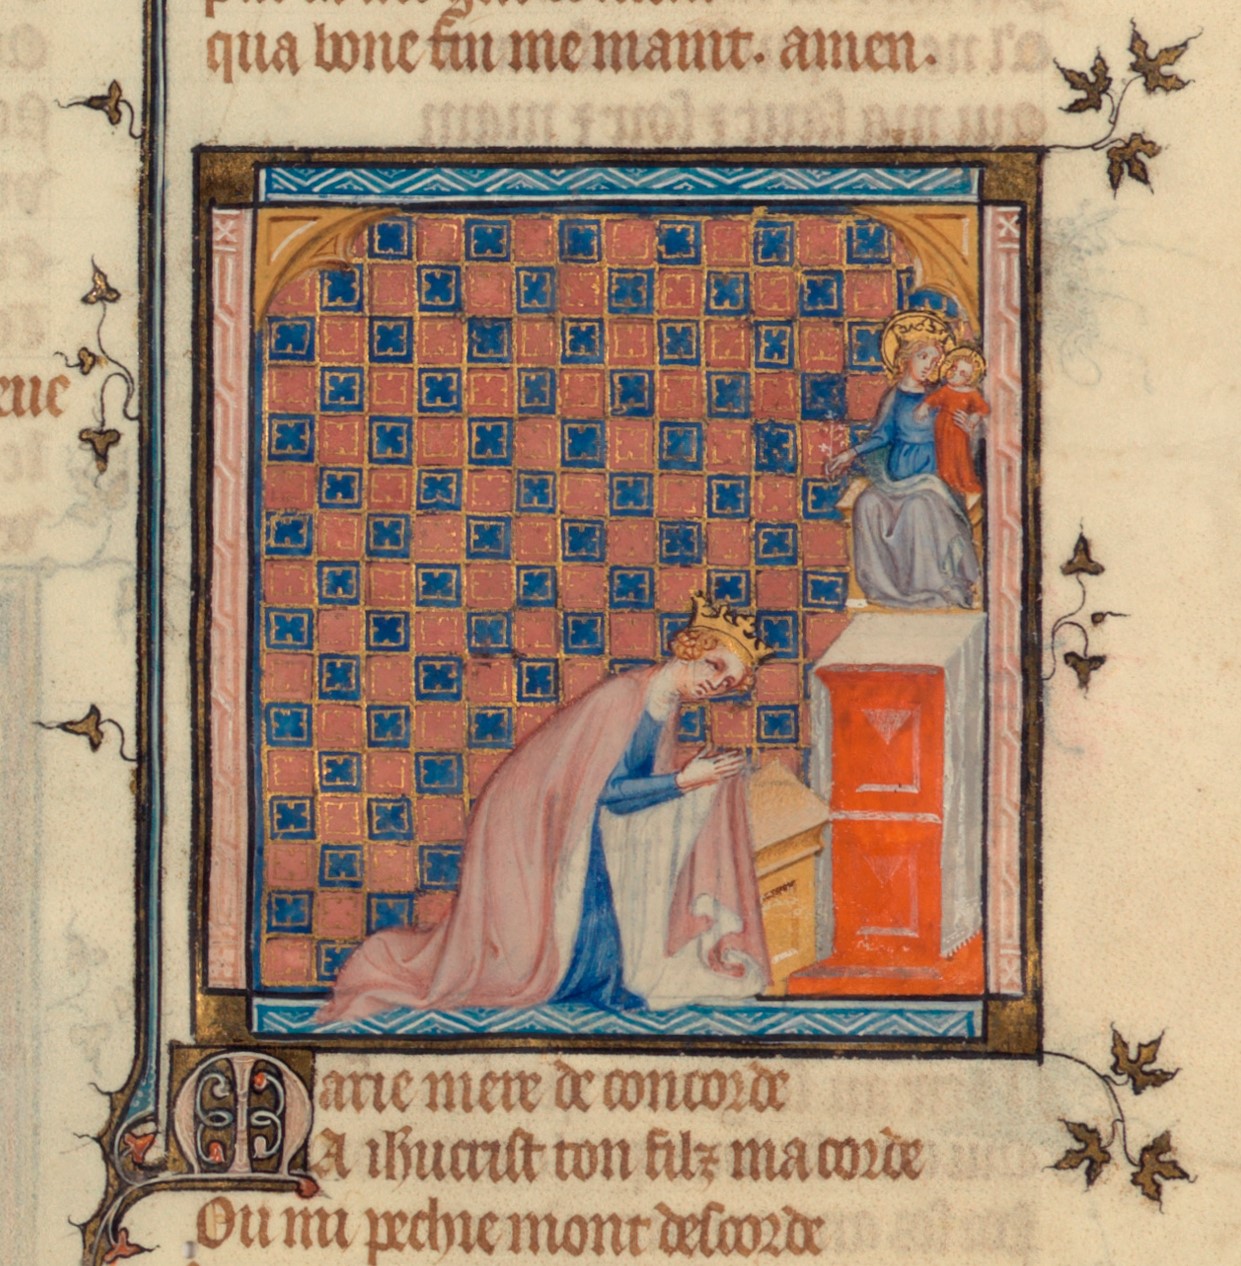 qua bone fin me maint. amen.
eue
Marie mere de concorde
A ihucrist ton filz ma corde
Ou mi pechie mont descorde